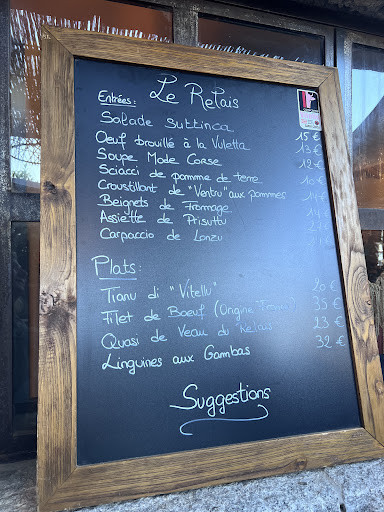 Le Relais
Entrées:
Salade Suttinca 15 €
Oeuf brouillé à la Vuletta 13 €
Soupe Mode Corse 12 €
Sciacci de pomme de terre 10 €
Croustillant de "Ventru" aux pommes
Beignets de Fromage
Assiette de Prisuttu
Carpaccio de Lonzu
Plats:
Tianu di "Vitellu" 20 €
Filet de Boeuf (Origine 35 €
Quasi de Veau du "Relais" 23 €
Linguines aux Gambas 32 €
Suggestions